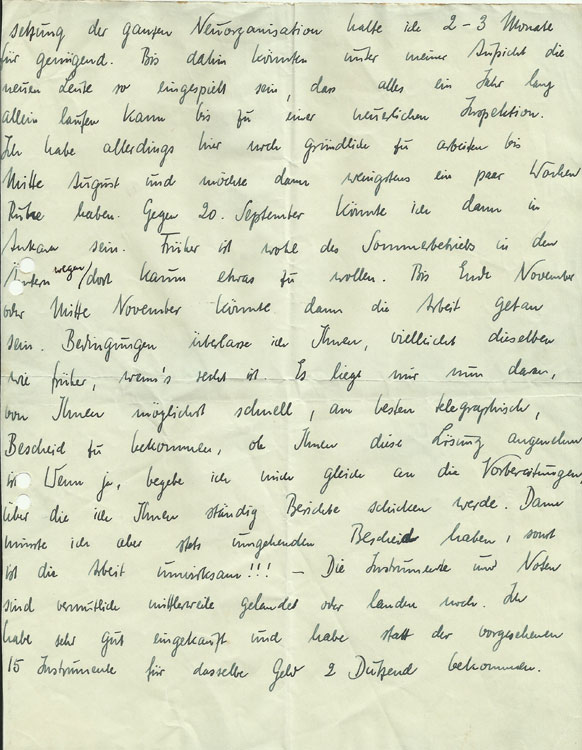 setzung der ganzen Neuorganisation halte ich 2-3 Monate
für genügend. Bis dahin könnten unter meiner Aufsicht die
neuen Leute so eingespielt sein, dass alles ein Jahr lang
allein laufen kann bis zu einer neuerlichen Inspektion.
Ich habe allerdings hier noch gründlich zu arbeiten bis
Mitte August und möchte dann wenigstens ein paar Wochen
Ruhe haben. Gegen 20. September könnte ich dann in
Ankara sein. Früher ist wohl des Sommerbetriebs in den
Ämtern wegen/dort kaum etwas zu wollen. Bis Ende November
oder Mitte November könnte dann die Arbeit getan
sein. Bedingungen überlasse ich Ihnen, vielleicht dieselben
wie früher, wenn's recht ist. Es liegt mir nun daran,
von Ihnen möglichst schnell, am besten telegraphisch,
Bescheid zu bekommen, ob Ihnen diese Lösung angenehm
ist. Wenn ja, begebe ich mich gleich an die Vorbereitungen,
über die ich Ihnen ständig Berichte schicken werde. Dann
müsste ich aber stets umgehenden Bescheid haben, sonst
ist die Arbeit unwirksam!!! – Die Instrumente und Noten
sind vermutlich mittlerweile gelandet oder landen noch. Ich
habe sehr gut eingekauft und habe statt der vorgesehenen
15 Instrumente für dasselbe Geld 2 Dutzend bekommen.